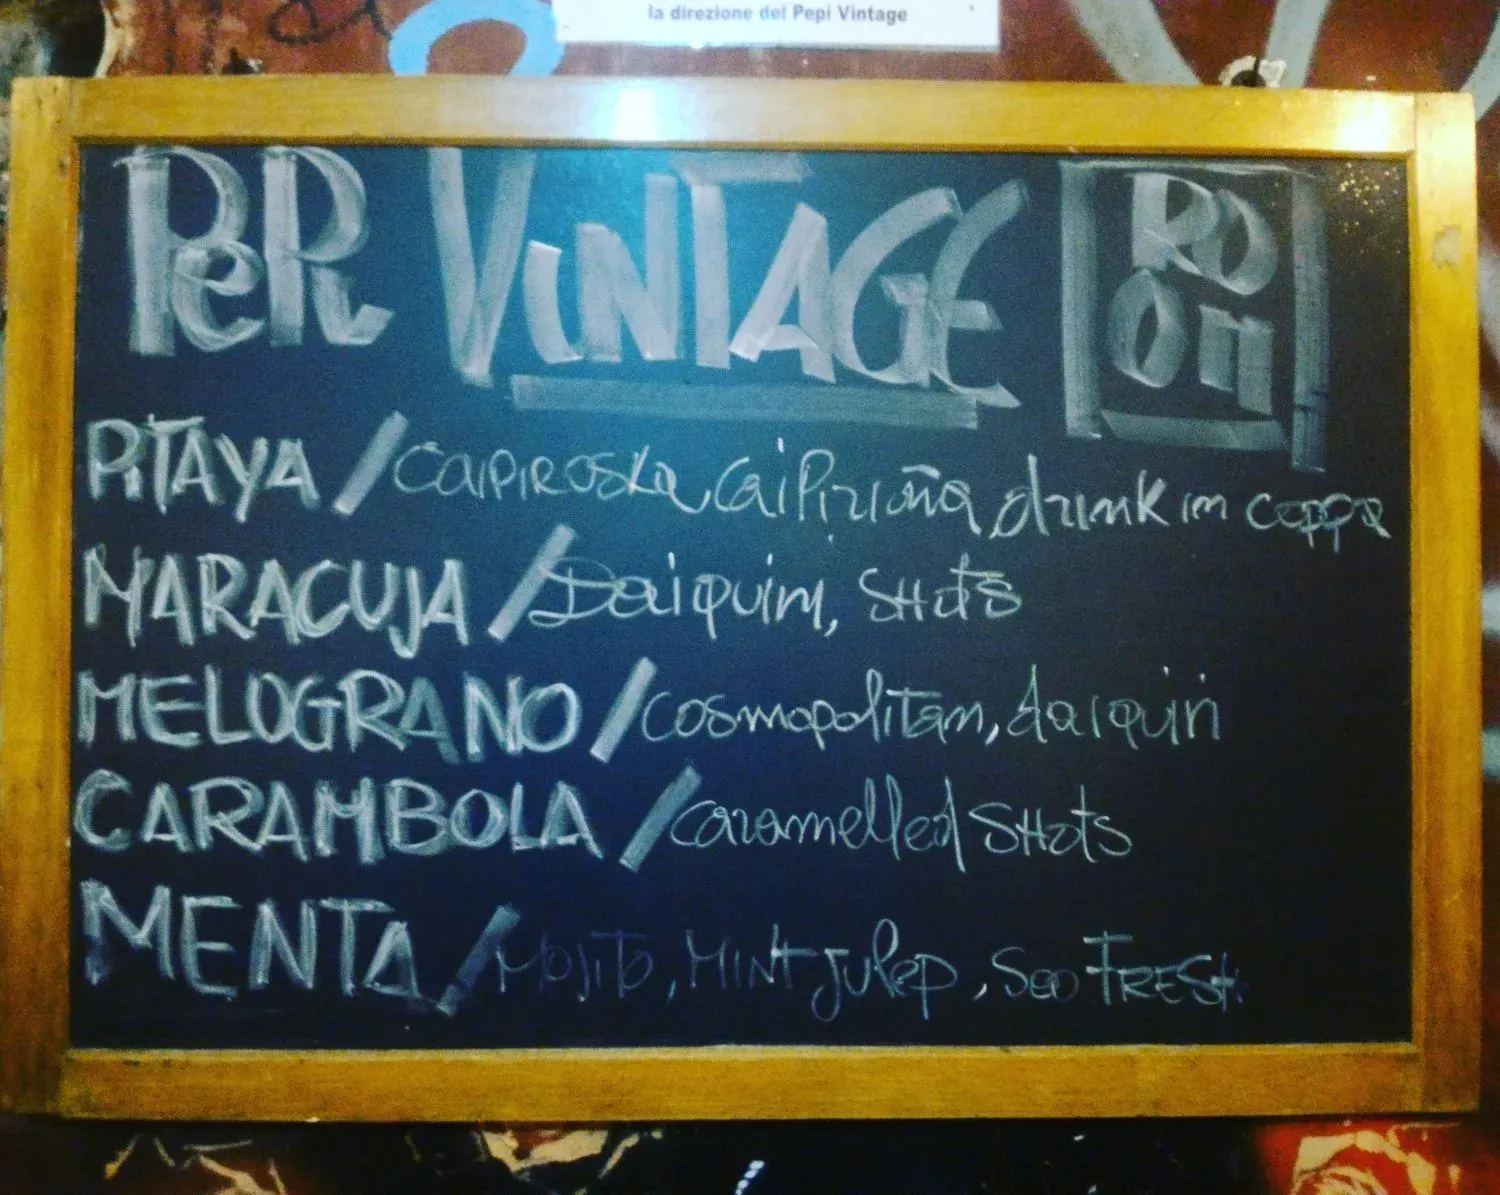 la direzione del Pepi Vintage
PeR VINTAGE ROOM
PITAYA / CAIPIROSKA, CAIPIRIÑA, drink in coppa
MARACUJA / Daiquiri, SHots
MELOGRANO / cosmopolitan, daiquiri
CARAMBOLA / caramelled SHots
MENTA / MOJITO, MINT Julep, Seo FRESH